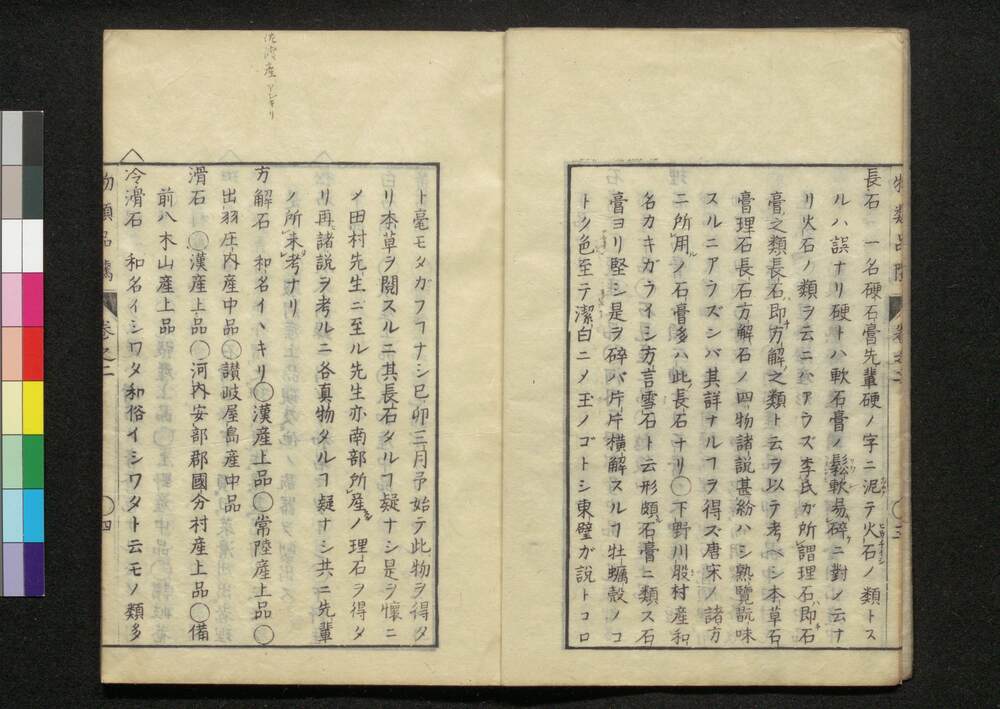 物類品隲 巻之二 〇三
長石 一名硬石膏先輩硬ノ字ニ泥テ火石ノ類トス
ルハ誤ナリ硬トハ軟石膏ノ鬆軟易碎ニ對メ云ナ
リ火石ノ類ヲ云ニハアラズ李氏ガ所謂理石即石
膏之類長石即方解之類ト云ヲ以テ考ベシ本草石
膏理石長石方解石ノ四物諸説甚紛ハシ熟覽翫味
スルニアラズンバ其詳ナルヿヲ得ズ唐宋ノ諸方
ニ所用ノ石膏多ハ此長石ナリ〇下野川股村産和
名カキガライシ方言雪石ト云形頗石膏ニ類ス石
膏ヨリ堅シ是ヲ碎バ片片横解スルヿ牡蠣殻ノコ
トク色至テ潔白ニメ玉ノゴトシ東璧ガ説トコロ
ト毫モタガフヿナシ已卯三月予始テ此物ヲ得タ
リ本草ヲ閲スルニ其長石タルヿ疑ナシ是ヲ懷ニ
メ田村先生ニ至ル先生亦南部所産ノ理石ヲ得タ
リ再諸説ヲ考ルニ各真物タルヿ疑ナシ共ニ先輩
ノ所未考ナリ
方解石 和名イヽキリ〇漢産上品〇常陸産上品〇
出羽庄内産中品〇讃岐屋島産中品
滑石 〇漢産上品〇河内安部郡國分村産上品〇備
前八木山産上品
冷滑石 和名イシワタ和俗イシワタト云モノ類多
物類品隲 巻之二 〇四
佐渡産アレキリ